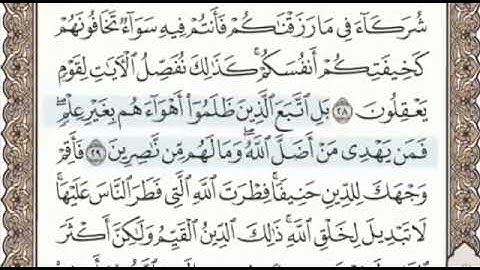 شُرَكَآءَ فِى مَا رَزَقْنَٰكُمْ فَأَنتُمْ فِيهِ سَوَآءٌ تَخَافُونَهُمْ
كَخِيفَتِكُمْ أَنفُسَكُمْ ۚ كَذَٰلِكَ نُفَصِّلُ الْآيَٰتِ لِقَوْمٍ
يَعْقِلُونَ ٢٨ بَلِ ٱتَّبَعَ ٱلَّذِينَ ظَلَمُوٓا۟ أَهْوَآءَهُم بِغَيْرِ عِلْمٍ ۖ
فَمَن يَهْدِى مَنْ أَضَلَّ ٱللَّهُ ۖ وَمَا لَهُم مِّن نَّٰصِرِينَ ٢٩ فَأَقِمْ
وَجْهَكَ لِلدِّينِ حَنِيفًا ۚ فِطْرَتَ ٱللَّهِ ٱلَّتِى فَطَرَ ٱلنَّاسَ عَلَيْهَا ۚ
لَا تَبْدِيلَ لِخَلْقِ ٱللَّهِ ۚ ذَٰلِكَ ٱلدِّينُ ٱلْقَيِّمُ وَلَٰكِنَّ أَكْثَرَ